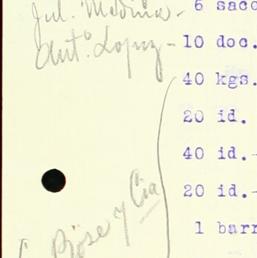 Jul. Medina - 6 saco
Ant.º Lopez - 10 doc.
40 kgs.
20 id.
40 id.-
20 id.-
1 barr
y Cia